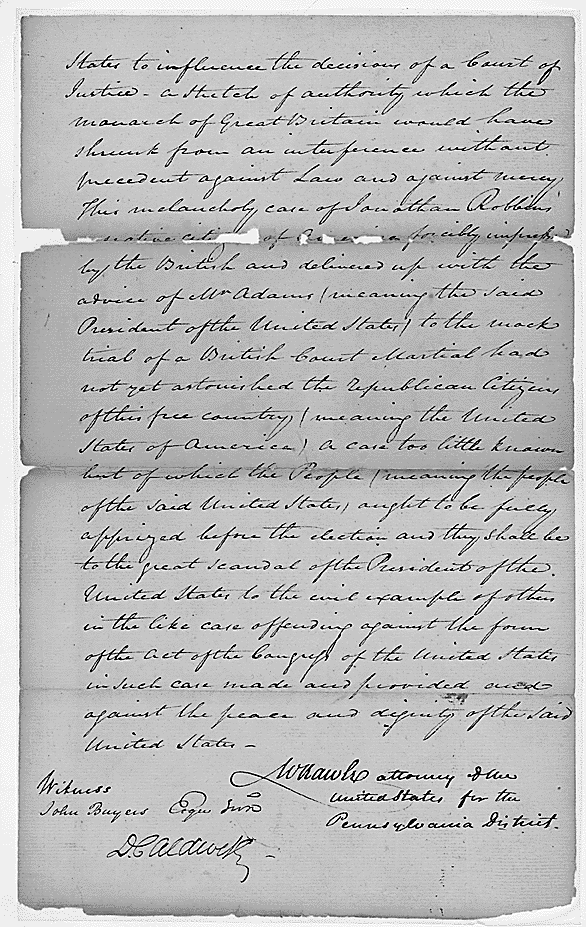 States to influence the decisions of a Court of
Justice - a stretch of authority which the
monarch of Great Britain would have
shrunk from an interference without
precedent against Law and against mercy.
This melancholy case of Jonathan Robbins
a native citizen of America forcibly impressed
by the British and delivered up with the
advice of Mr Adams (meaning the said
President of the United States) to the mock
trial of a British Court Martial had
not yet astonished the republican Citizens
of this free country (meaning the United
States of America) a case too little known
but of which the People (meaning the people
of the said United States) ought to be fully
apprized before the election and they shall be
to the great scandal of the President of the
United States to the evil example of others
in the like case offending against the form
of the Act of the Congress of the United States
in such case made and provided and
against the peace and dignity of the said
United States -
W Rawle attorney of the
United States for the
Pennsylvania District.
Witness
John Buyers Esqr
D. Caldwell -